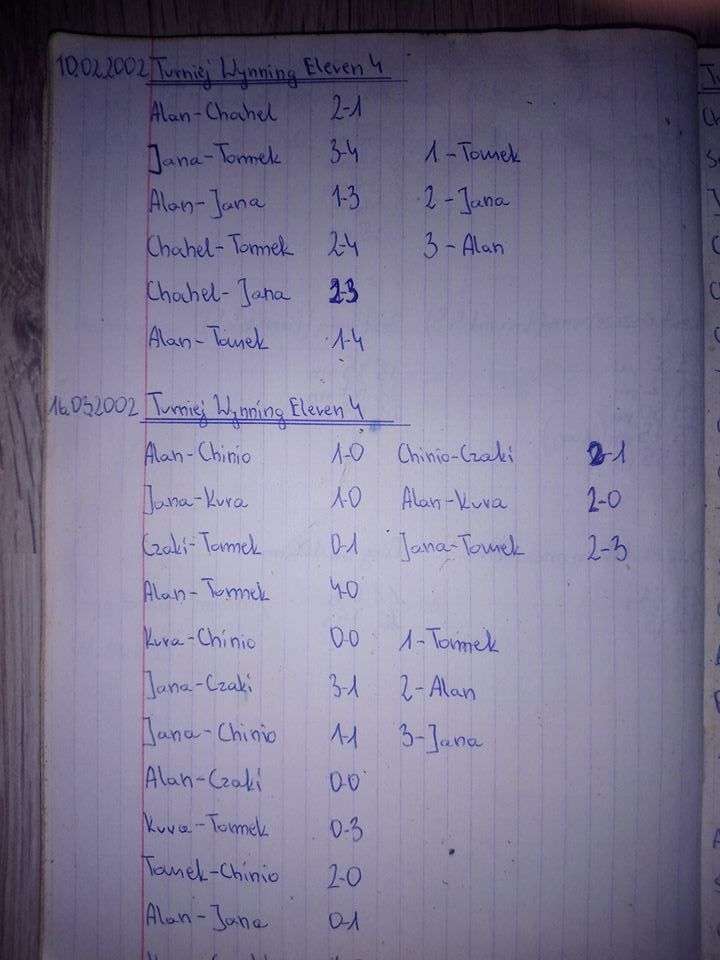 10.02.2002 Turniej Wynning Eleven 4
Alan-Chahel 2-1
Jana-Tomek 3-4 1-Tomek
Alan-Jana 1-3 2-Jana
Chahel-Tomek 2-4 3-Alan
Chahel-Jana 2-3
Alan-Tomek 1-4
16.03.2002 Turniej Wynning Eleven 4
Alan-Chinio 1-0 Chinio-Czaki 2-1
Jana-Kura 1-0 Alan-Kura 2-0
Czaki-Tomek 0-1 Jana-Tomek 2-3
Alan-Tomek 4-0
Kura-Chinio 0-0 1-Tomek
Jana-Czaki 3-1 2-Alan
Jana-Chinio 1-1 3-Jana
Alan-Czaki 0-0
Kura-Tomek 0-3
Tomek-Chinio 2-0
Alan-Jana 0-1